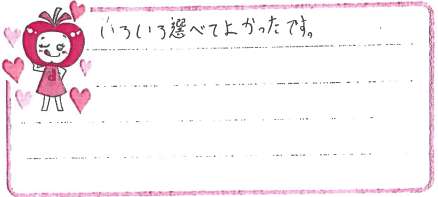 いろいろ選べてよかったです。